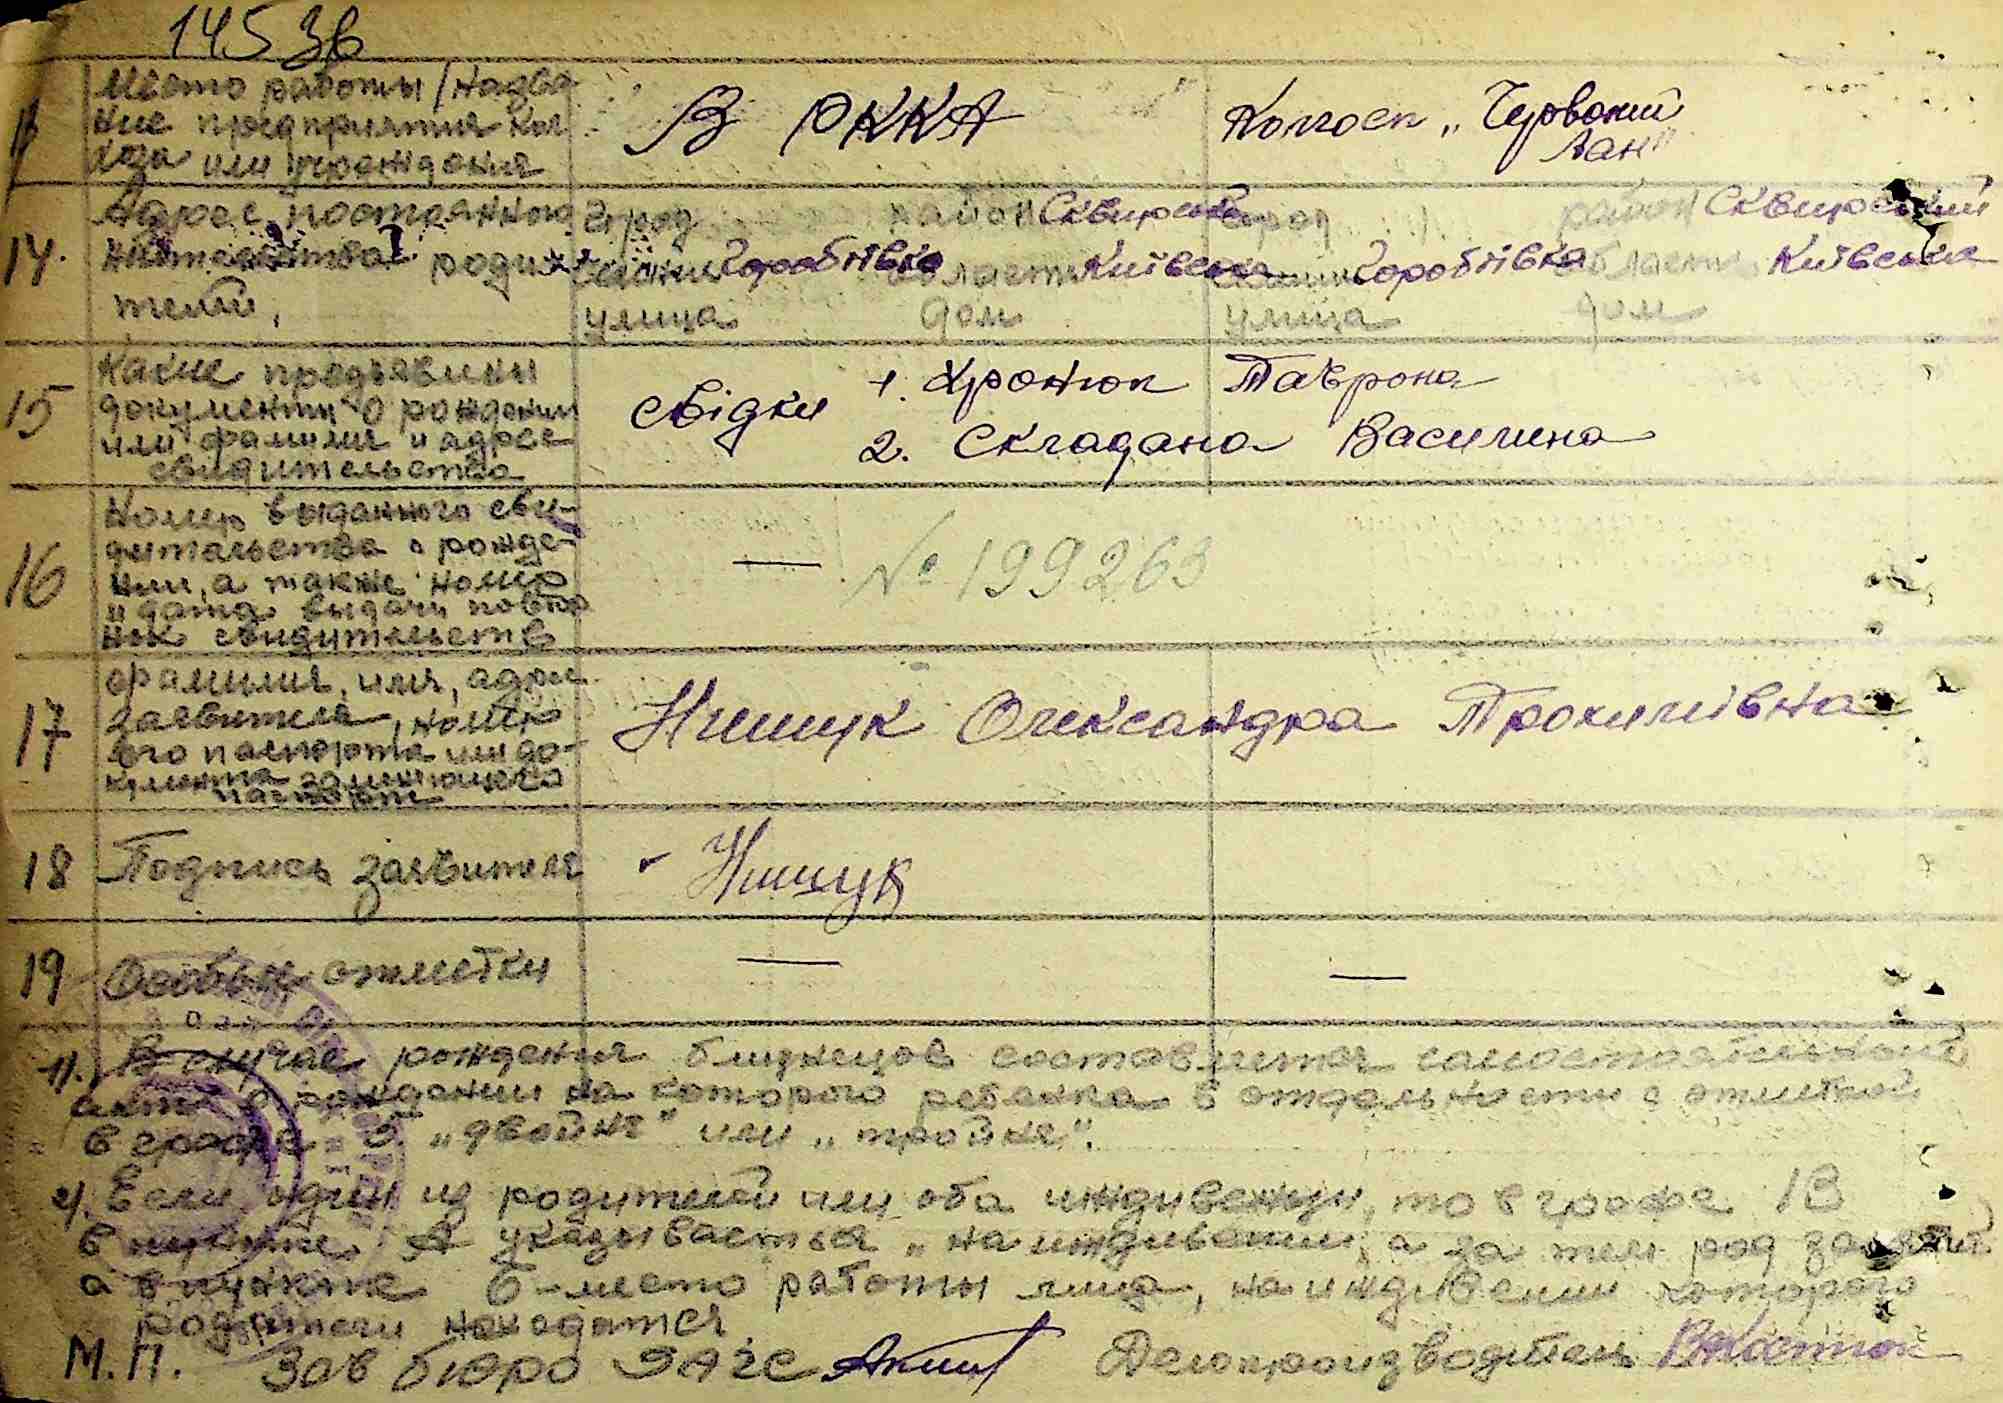 145 зв
Место работы /назва
ние предприятия кол
хоза или учреждения
В РККА
Колгосп „Червоний
Лан"
14. Адрес постоянного
жительства роди
телей,
город район Сквирський
Горобіївка область Київська
улица дом
город район Сквирський
Горобіївка область Київська
улица дом
15 Какие предъявили
документы о рождении
или фамилия и адрес
свидительства
свідки
1. Хронюк Таврона
2. Складана Василина
16 Номер выданного сви-
дительства о рожде-
нии, а также номер
и дата выдачи повтор
ных свидительств
— № 199263
17 Фамилия, имя, адрес
заявителя, номер
его паспорта или до-
кумента заменяющего
паспорт
Нищук Олександра Прокопівна
18 Подпись заявителя
Нищук
19 Особые отметки
— —
1). В случае рождения близнецов составляется самостоятельный
акт о рождении на которого ребенка в отдельности с отметкой
в графе 5 „двойня" или „тройня".
2). Если один из родителей или оба иждивенцы, то в графе 13
в пункте А указывается „на иждивении, а за тем род занятий
а в пункте б-место работы лица, на иждивении которого
родители находятся.
М. П. Зав бюро ЗАГС Делопроизводитель